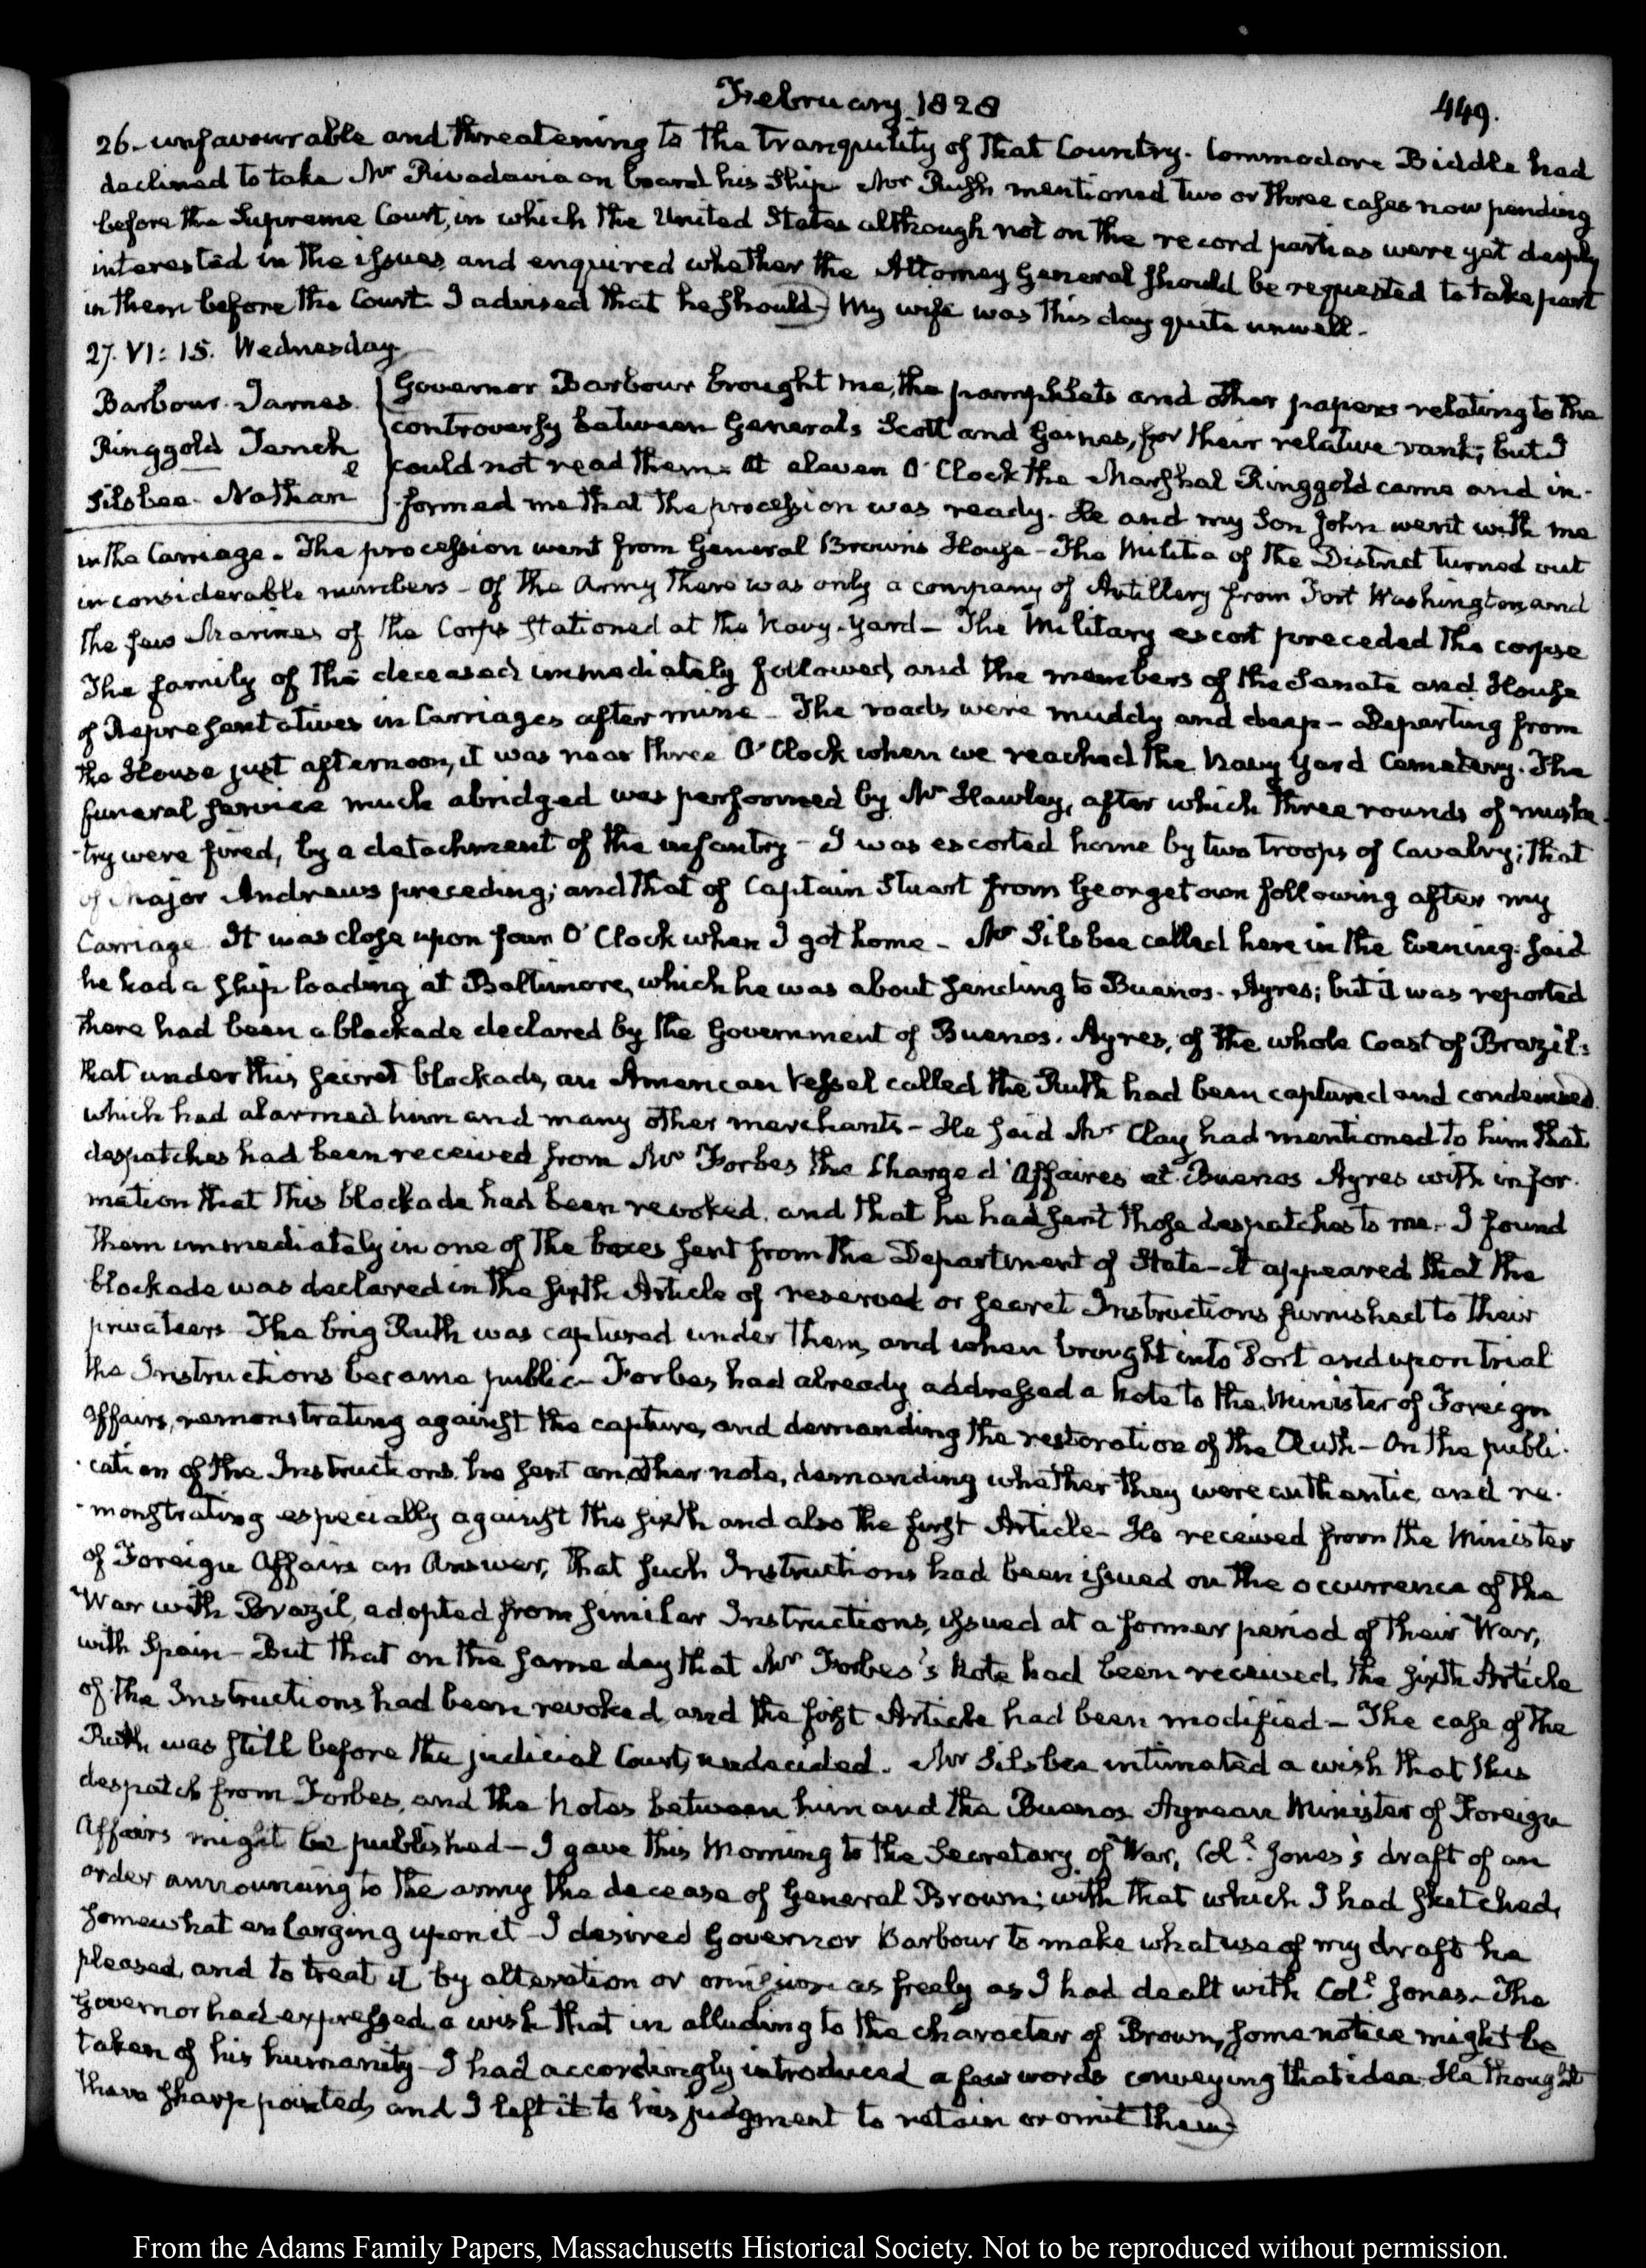 February 1828
449.
26. unfavourable and threatening to the tranquility of that Country. Commodore Biddle had
declined to take Mr Rivadavia on board his Ship. Mr Rush mentioned two or three cases now pending
before the Supreme Court, in which the United States although not on the record parties were yet deeply
interested in the issues, and enquired whether the Attorney General should be requested to take part
in them before the Court. I advised that he should. My wife was this day quite unwell.
27. VI: 15. Wednesday.
Barbour. James.
Ringgold Tench
Silsbee. Nathaniel
Governor Barbour brought me, the pamphlets and other papers relating to the
controversy between Generals Scott and Gaines, for their relative rank; but I
could not read them. At eleven O'Clock the Marshal Ringgold came and in-
-formed me that the procession was ready. He and my Son John went with me
in the Carriage. The procession went from General Brown's House - The Militia of the District turned out
in considerable numbers - Of the Army there was only a company of Artillery from Fort Washington, and
the few Marines of the Corps stationed at the Navy-Yard - The Military escort preceded the corpse
The family of the deceased immediately followed, and the members of the Senate and House
of Representatives in Carriages after mine - The roads were muddy and deep - Departing from
the House just afternoon, it was near three O'Clock when we reached the Navy Yard Cemetery. The
funeral service much abridged was performed by Mr Hawley, after which three rounds of muske-
-try were fired, by a detachment of the infantry - I was escorted home by two troops of Cavalry; that
of Major Andrews preceding; and that of Captain Stuart from Georgetown following after my
Carriage. It was close upon four O'Clock when I got home - Mr Silsbee called here in the Evening. Said
he had a ship loading at Baltimore, which he was about sending to Buenos-Ayres; but it was reported
there had been a blockade declared by the Government of Buenos-Ayres, of the whole Coast of Brazil:
that under this secret blockade, an American Vessel called the Ruth had been captured and condemned.
which had alarmed him and many other merchants - He said Mr Clay had mentioned to him that
despatches had been received from Mr Forbes the Chargé d'Affaires at Buenos Ayres with infor-
mation that this blockade had been revoked, and that he had sent those despatches to me. I found
them immediately in one of the boxes sent from the Department of State - It appeared that the
blockade was declared in the sixth Article of reserved or secret Instructions furnished to their
privateers. The brig Ruth was captured under them, and when brought into Port and upon trial
the Instructions became public - Forbes had already addressed a Note to the Minister of Foreign
Affairs, remonstrating against the capture, and demanding the restoration of the Ruth - On the publi-
-cation of the Instructions he sent another note, demanding whether they were authentic, and re-
-monstrating especially against the sixth and also the first Article - He received from the Minister
of Foreign Affairs an Answer, that such Instructions had been issued on the occurrence of the
War with Brazil, adopted from similar Instructions, issued at a former period of their War,
with Spain - But that on the same day that Mr Forbes's Note had been received, the sixth Article
of the Instructions had been revoked, and the first Article had been modified - The case of the
Ruth was still before the judicial Court, undecided. Mr Silsbee intimated a wish that this
despatch from Forbes, and the Notes between him and the Buenos Ayrean Minister of Foreign
Affairs might be published - I gave this Morning to the Secretary of War, Col. Jones's draft of an
order announcing to the army the decease of General Brown; with that which I had sketched,
somewhat enlarging upon it - I desired Governor Barbour to make what use of my draft he
pleased, and to treat it by alteration or omission as freely as I had dealt with Col. Jones - The
Governor had expressed a wish that in alluding to the character of Brown, some notice might be
taken of his humanity - I had accordingly introduced a few words conveying that idea. He thought
them sharp pointed, and I left it to his judgment to retain or omit them
From the Adams Family Papers, Massachusetts Historical Society. Not to be reproduced without permission.